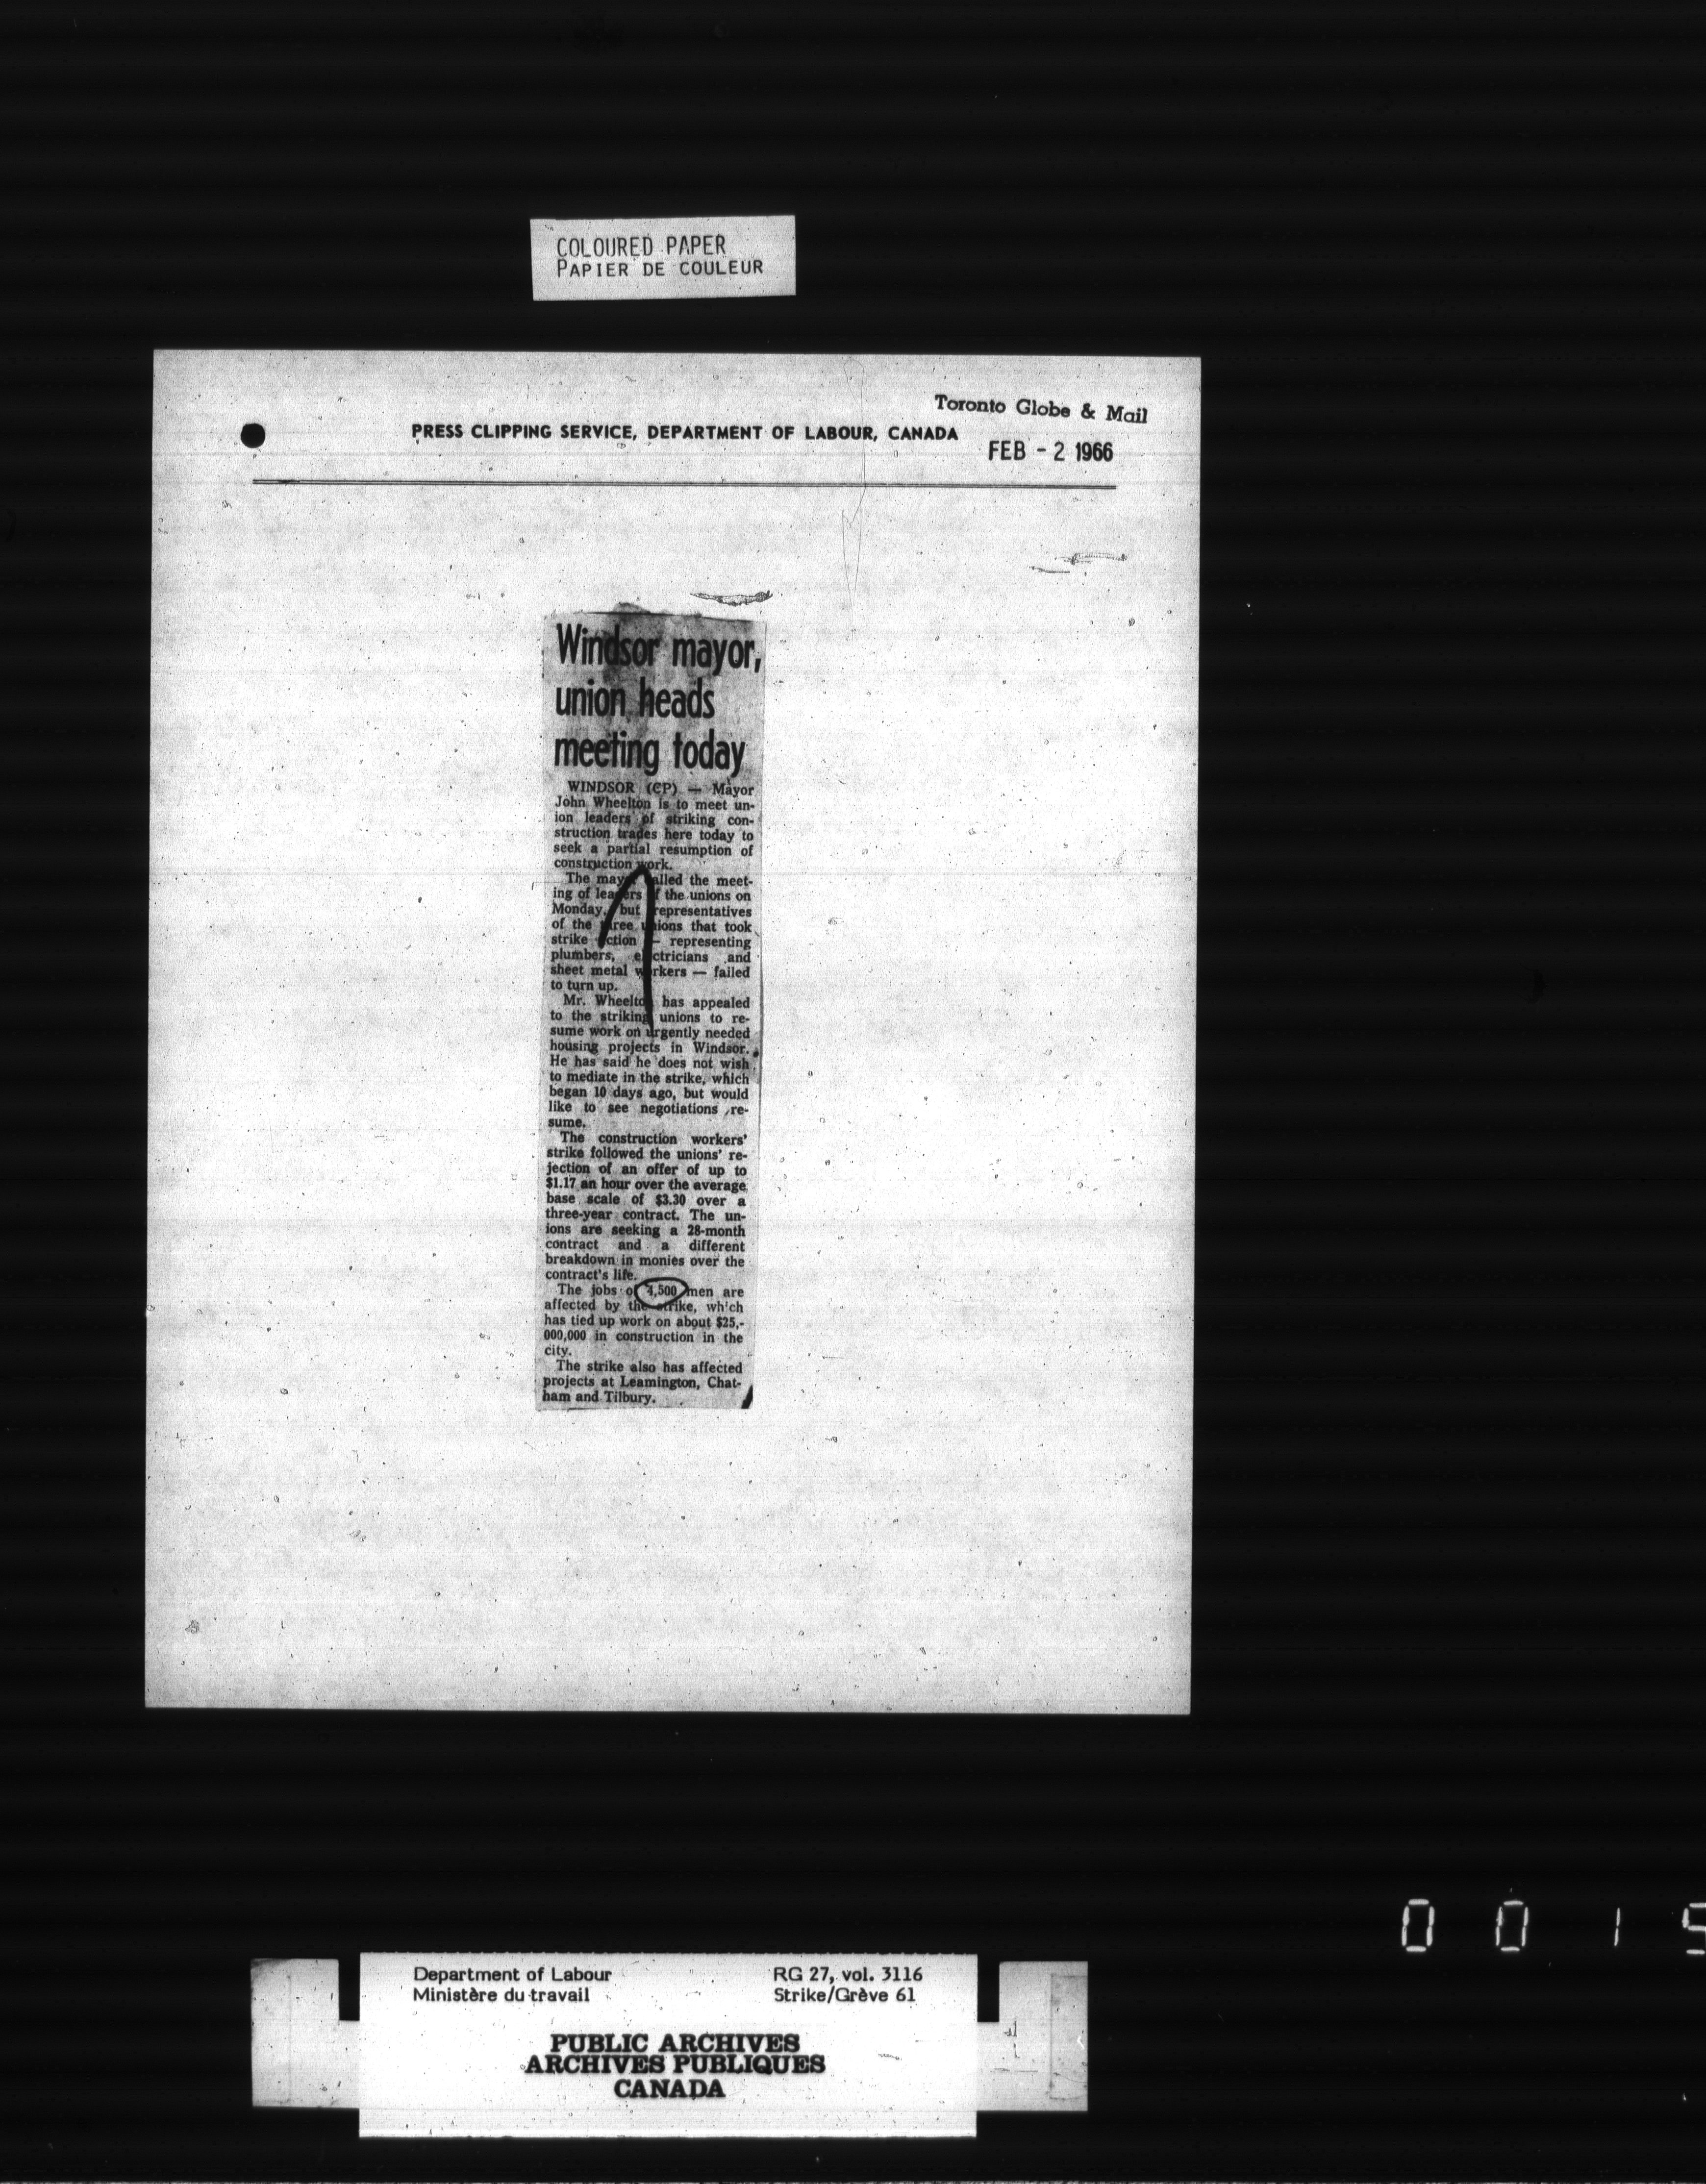 COLOURED PAPER
PAPIER DE COULEUR
Toronto Globe & Mail
PRESS CLIPPING SERVICE, DEPARTMENT OF LABOUR, CANADA
FEB - 2 1966
Windsor mayor,
union heads
meeting today
WINDSOR (CP) — Mayor
John Wheelton is to meet un-
ion leaders of striking con-
struction trades here today to
seek a partial resumption of
construction work.
The mayor called the meet-
ing of leaders of the unions on
Monday, but representatives
of the three unions that took
strike action — representing
plumbers, electricians and
sheet metal workers — failed
to turn up.
Mr. Wheelton has appealed
to the striking unions to re-
sume work on urgently needed
housing projects in Windsor.
He has said he does not wish
to mediate in the strike, which
began 10 days ago, but would
like to see negotiations re-
sume.
The construction workers'
strike followed the unions' re-
jection of an offer of up to
$1.17 an hour over the average
base scale of $3.30 over a
three-year contract. The un-
ions are seeking a 28-month
contract and a different
breakdown in monies over the
contract's life.
The jobs of 4,500 men are
affected by the strike, which
has tied up work on about $25,-
000,000 in construction in the
city.
The strike also has affected
projects at Leamington, Chat-
ham and Tilbury.
0 0 1 5
Department of Labour
Ministère du travail
RG 27, vol. 3116
Strike/Grève 61
PUBLIC ARCHIVES
ARCHIVES PUBLIQUES
CANADA